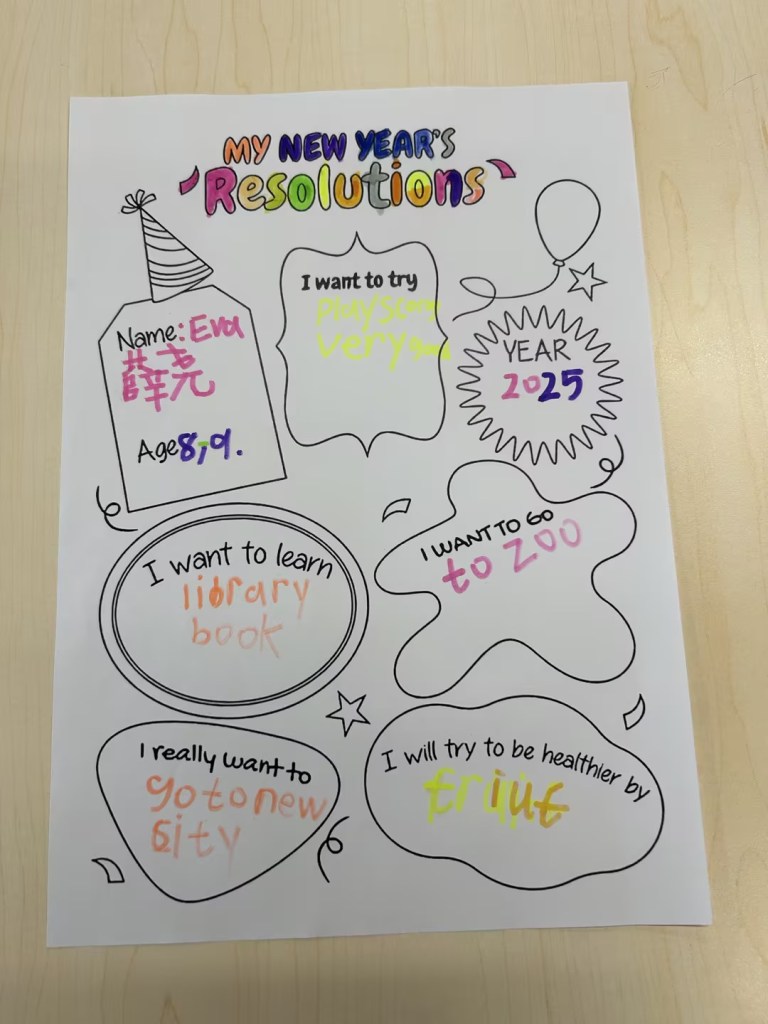 MY NEW YEAR'S
Resolutions
Name: Eva
薛尧
Age 8,9.
I want to try
play
very
YEAR
2025
I want to learn
library
book
I WANT TO GO
to zoo
I really want to
go to new
city
I will try to be healthier by